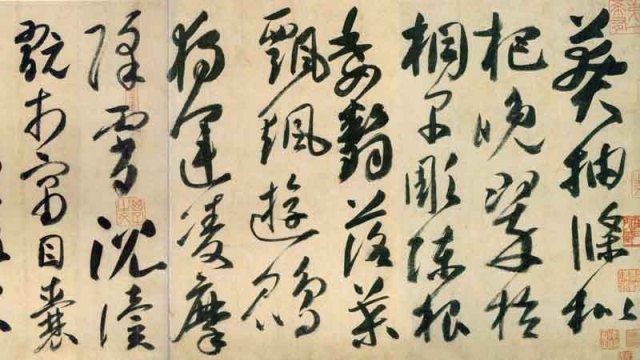 莽抽條枇
杷晚翠梧
桐早彫陳根
委翳落葉
飄颻遊鵾
獨運凌摩
絳霄耽讀
翫市寓目囊